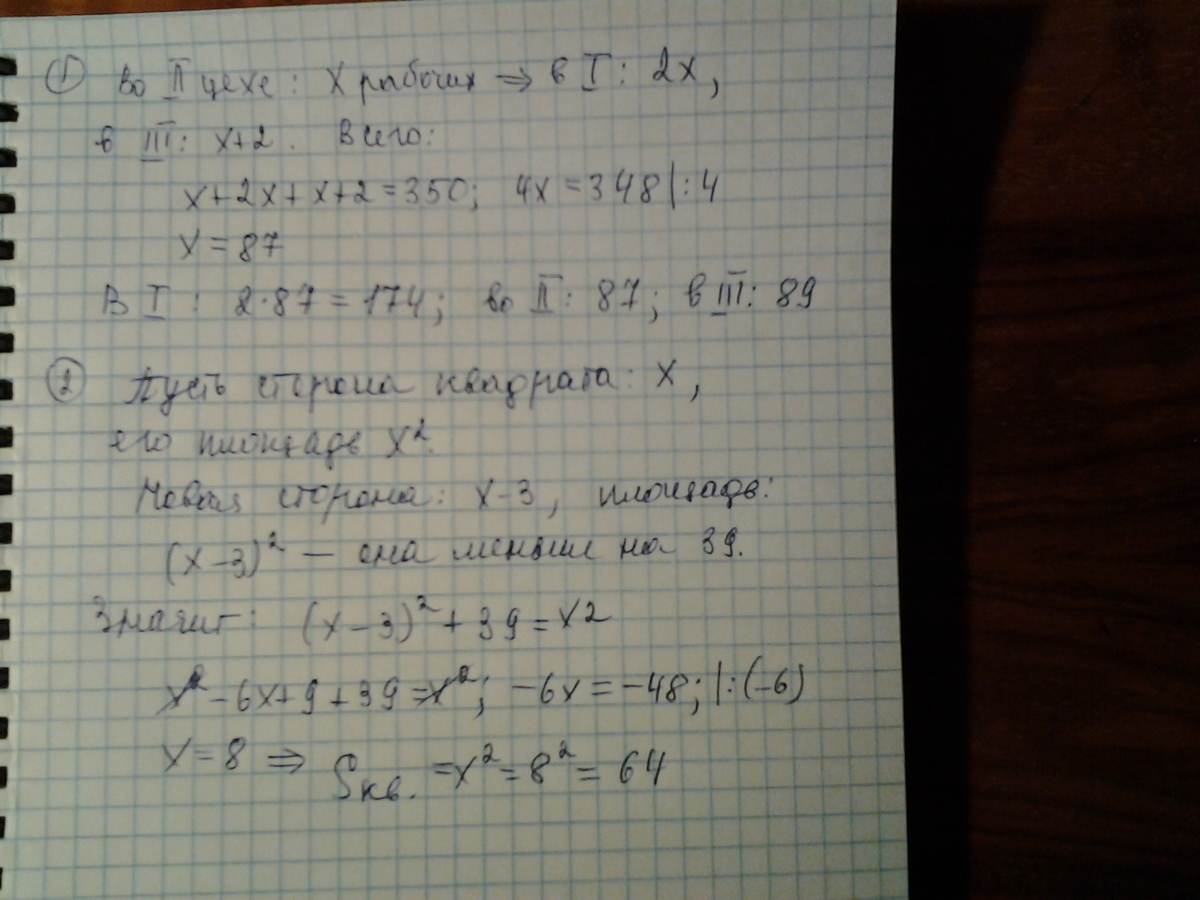 ① Во II цехе: x рабочих ⇒ в I: 2x,
в III: x+2. Всего:
x+2x+x+2=350; 4x=348|:4
x=87
В I: 2·87=174; во II: 87; в III: 89
② Пусть сторона квадрата: x,
его площадь x².
Новая сторона: x-3, площадь:
(x-3)² — она меньше на 39.
Значит: (x-3)²+39=x2
x²-6x+9+39=x²; -6x=-48;|:(-6)
x=8 ⇒ Sкв.=x²=8²=64